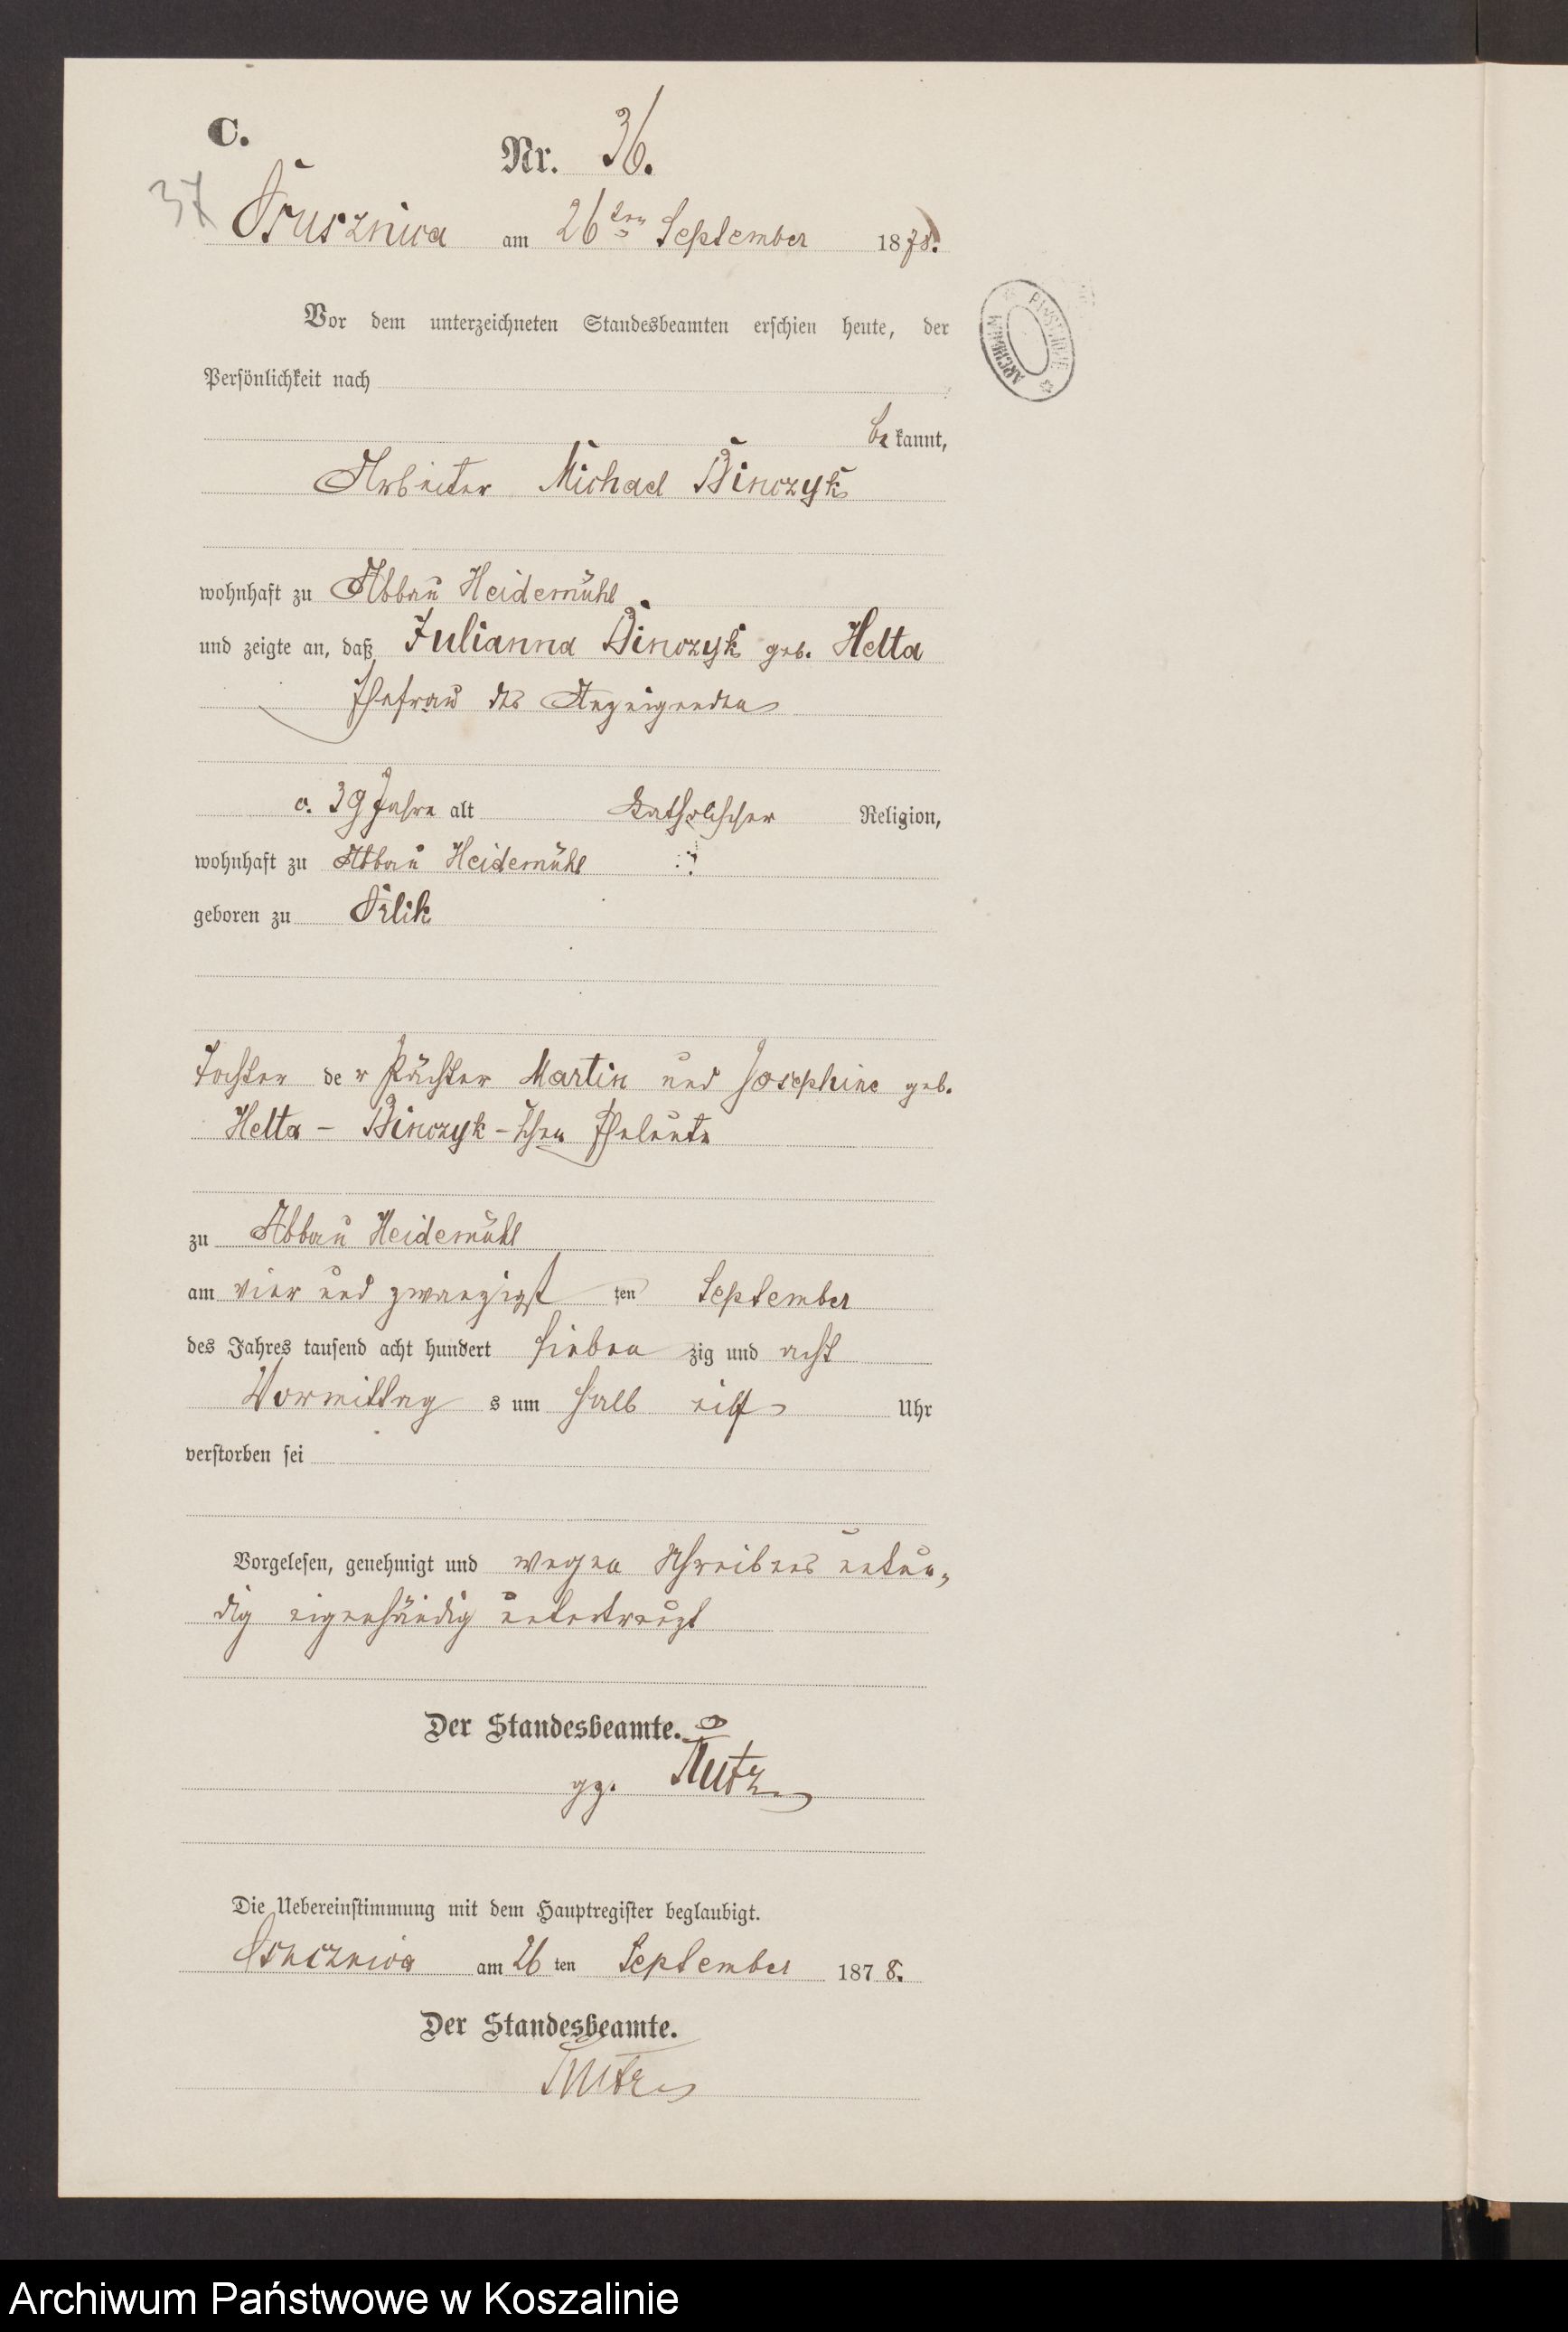 C.
Nr. 36.
37
Prusznica am 26ten September 1878.
Vor dem unterzeichneten Standesbeamten erschien heute, der
Persönlichkeit nach
be kannt,
Arbeiter Michael Binczyk
wohnhaft zu Abbau Heidemühl
und zeigte an, daß Julianna Binczyk geb. Helta
Ehefrau des Anzeigenden
c. 39 Jahre alt katholischer Religion,
wohnhaft zu Abbau Heidemühl
geboren zu
Tochter de r Pächter Martin und Josephine geb.
Helta - Binczyk - schen Eheleute
zu Abbau Heidemühl
am vier und zwanzigst ten September
des Jahres tausend acht hundert sieben zig und acht
Vormittag s um halb eilf Uhr
verstorben sei
Vorgelesen, genehmigt und wegen Schreibens unkun-
dig eigenhändig unterkreuzt
Der Standesbeamte.
gz.
Die Uebereinstimmung mit dem Hauptregister beglaubigt.
Prusznica am 26 ten September 187 8.
Der Standesbeamte.
ARCHIWUM PAŃSTWOWE
Archiwum Państwowe w Koszalinie